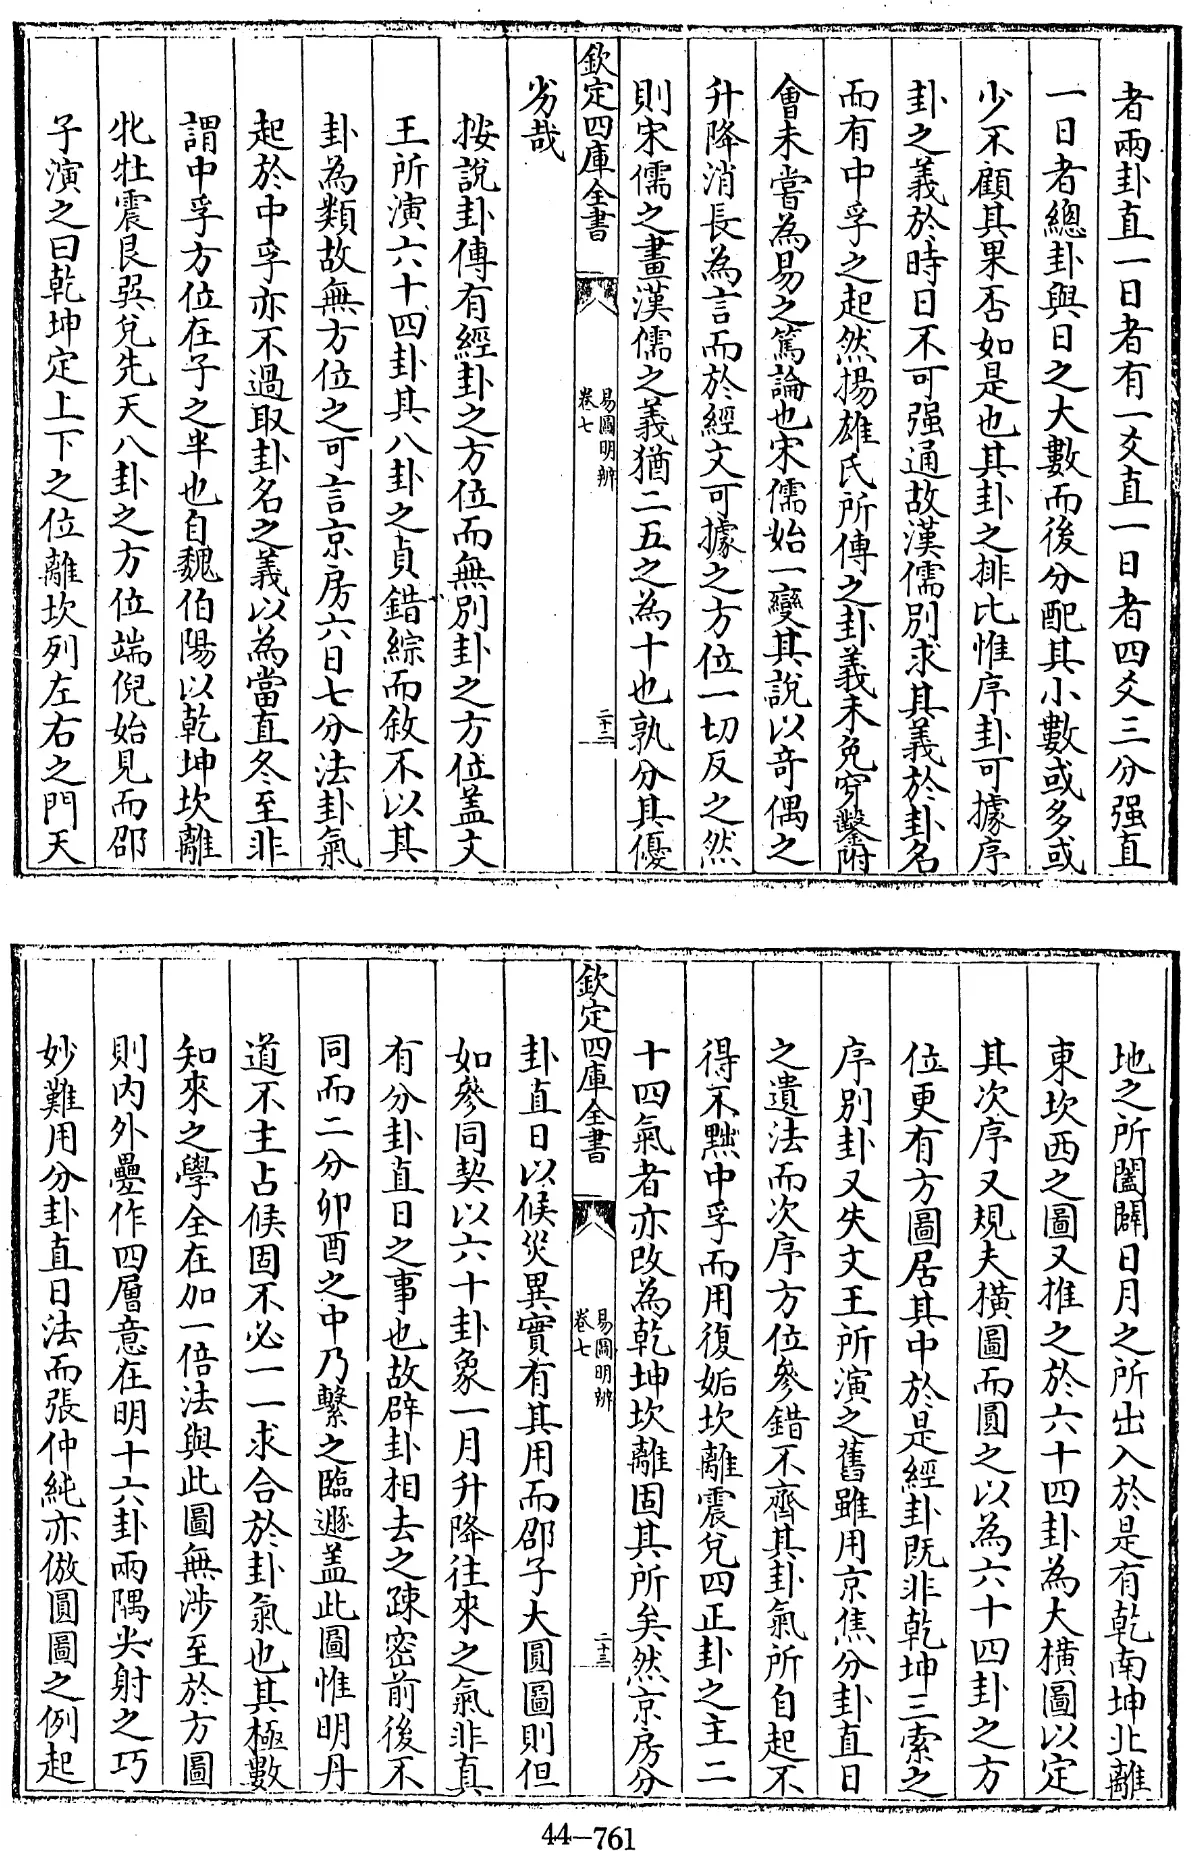 者兩卦直一日者有一爻直一日者四爻三分强直
一日者總卦與日之大數而後分配其小數或多或
少不顧其果否如是也其卦之排比惟序卦可據序
卦之義於時日不可强通故漢儒別求其義於卦名
而有中孚之起然揚雄氏所傳之卦義未免穿鑿附
會未嘗為易之篤論也宋儒始一變其說以奇偶之
升降消長為言而於經文可據之方位一切反之然
則宋儒之畫漢儒之義猶二五之為十也孰分其優
欽定四庫全書
易圖明辨
卷七
二十二
劣哉
按說卦傳有經卦之方位而無別卦之方位蓋文
王所演六十四卦其八卦之貞錯綜而敘不以其
卦為類故無方位之可言京房六日七分法卦氣
起於中孚亦不過取卦名之義以為當直冬至非
謂中孚方位在子之半也自魏伯陽以乾坤坎離
牝牡震艮巽兌先天八卦之方位端倪始見而邵
子演之曰乾坤定上下之位離坎列左右之門天
地之所闔闢日月之所出入於是有乾南坤北離
東坎西之圖又推之於六十四卦為大橫圖以定
其次序又規夫橫圖而圓之以為六十四卦之方
位更有方圖居其中於是經卦既非乾坤三索之
序別卦又失文王所演之舊雖用京焦分卦直日
之遺法而次序方位參錯不齊其卦氣所自起不
得不黜中孚而用復姤坎離震兌四正卦之主二
十四氣者亦改為乾坤坎離固其所矣然京房分
欽定四庫全書
易圖明辨
卷七
二十三
卦直日以候災異實有其用而邵子大圓圖則但
如參同契以六十卦象一月升降往來之氣非真
有分卦直日之事也故辟卦相去之疎密前後不
同而二分卯酉之中乃繫之臨遯蓋此圖惟明丹
道不主占候固不必一一求合於卦氣也其極數
知來之學全在加一倍法與此圖無涉至於方圖
則內外疊作四層意在明十六卦兩隅尖射之巧
妙難用分卦直日法而張仲純亦倣圓圖之例起
44-761